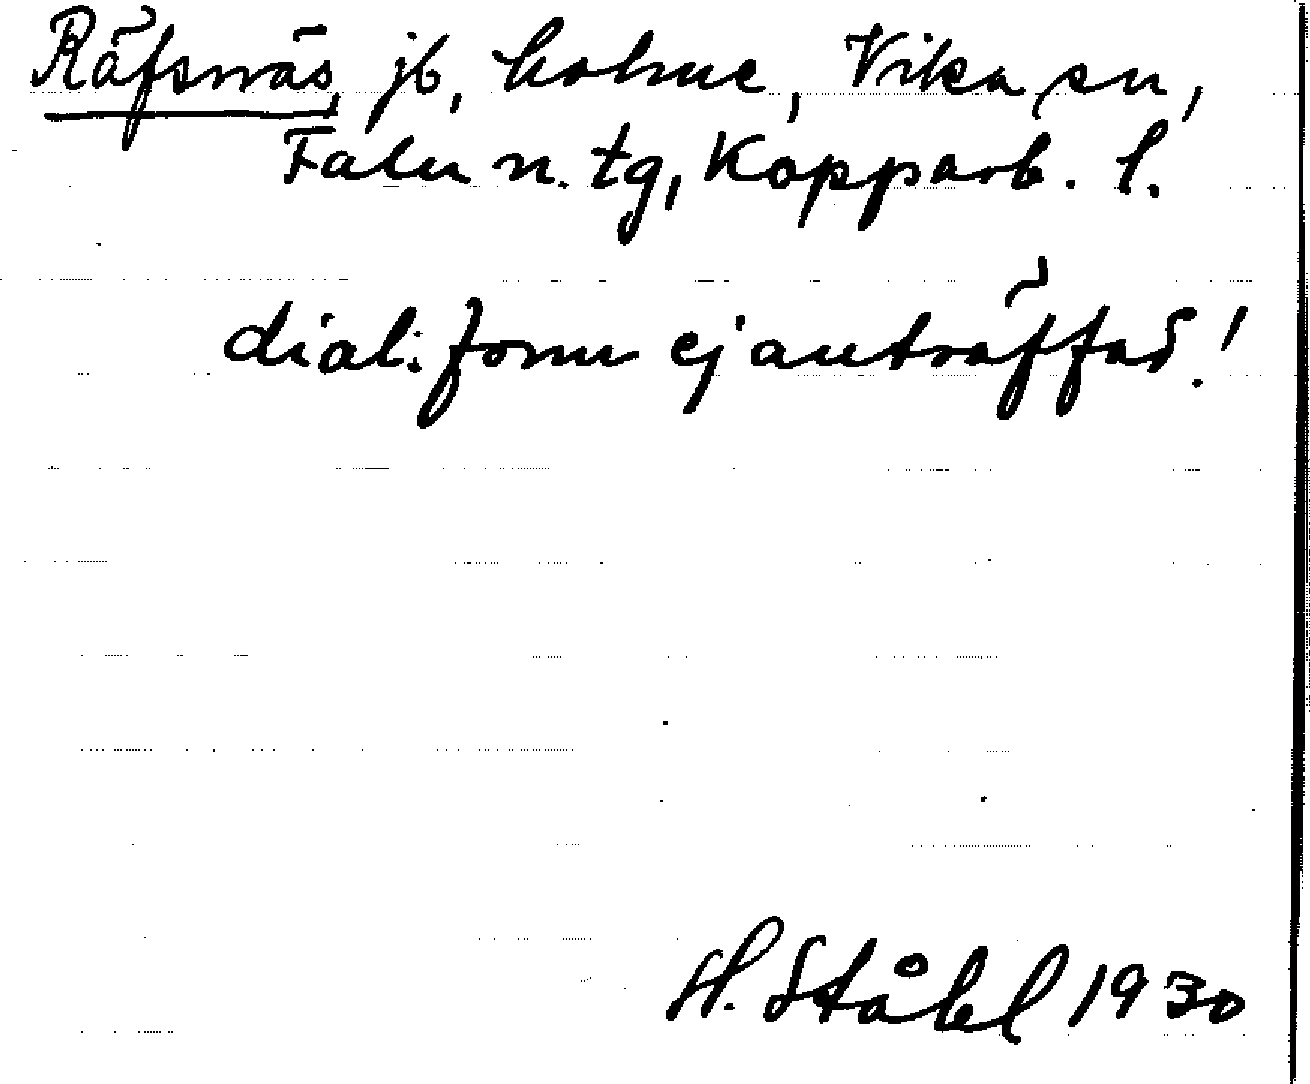 Räfsnäs, jb, holme, Vika sn,
Falu n. tg, Kopparb. l.
dial. form ej anträffad!
H. Ståhl 1930